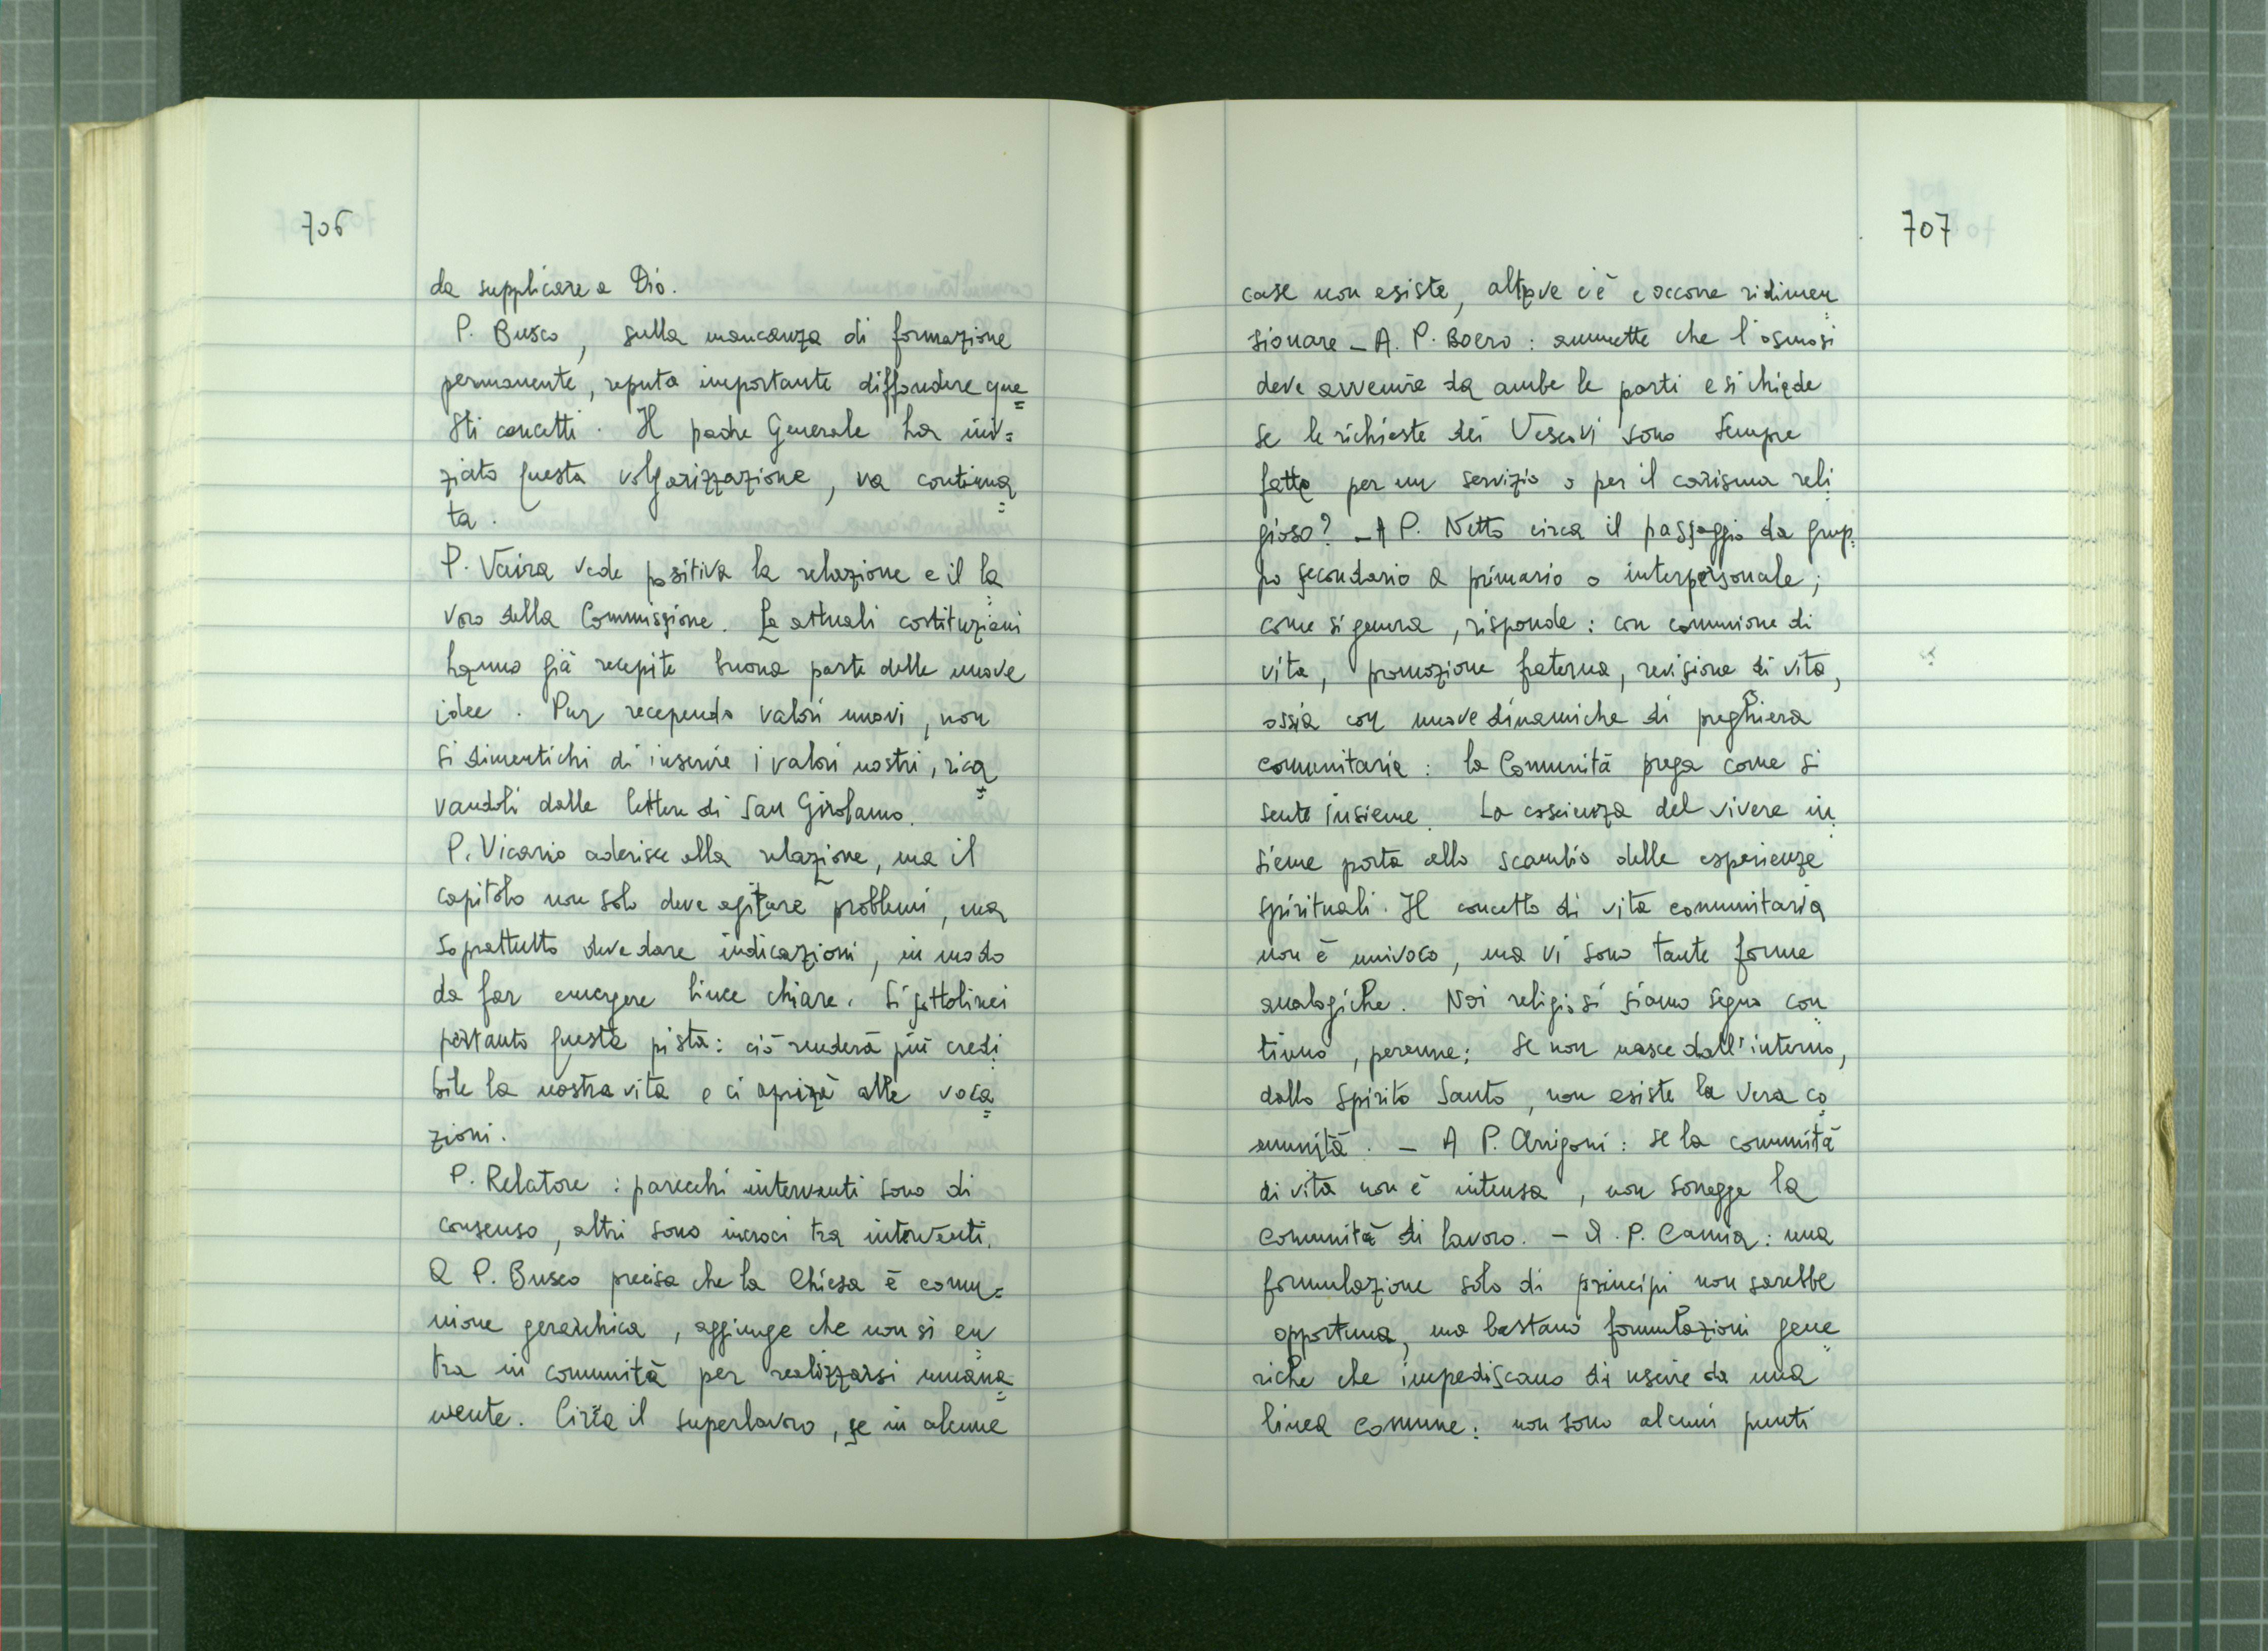 706
da supplicare a Dio.
P. Busco, sulla mancanza di formazione
permanente, reputa importante diffondere que=
sti concetti. Il padre Generale ha ini=
ziato questa volgarizzazione, va continua=
ta.
P. Vaira vede positiva la relazione e il la=
voro della Commissione. Le attuali costituzioni
hanno già recepite buona parte delle nuove
idee. Pur recependo valori nuovi, non
si dimentichi di inserire i valori nostri, rica=
vandoli dalle lettere di San Girolamo.
P. Vicario aderisce alla relazione, ma il
capitolo non solo deve agitare problemi, ma
soprattutto deve dare indicazioni, in modo
da far emergere linee chiare. Si sottolinei
pertanto questa pista: ciò renderà più credi=
bile la nostra vita e ci aprirà alle voca=
zioni.
P. Relatore: parecchi interventi sono di
consenso, altri sono incroci tra interventi.
A P. Busco precisa che la Chiesa è comu=
nione gerarchica, aggiunge che non si en=
tra in comunità per realizzarsi umana=
mente. Circa il superlavoro, se in alcune
707
case non esiste, altrove c'è e occorre ridimen=
sionare - A. P. Boero: ammette che l'osmosi
deve avvenire da ambe le parti e si chiede
se le richieste dei Vescovi sono sempre
fatte per un servizio o per il carisma reli=
gioso? - A P. Netto circa il passaggio da grup=
po secondario a primario o interpersonale;
come si genera, risponde: con comunione di
vita, promozione fraterna, revisione di vita,
ossia con nuove dinamiche di preghiera
comunitaria: la Comunità prega come si
sente insieme. La coscienza del vivere in=
sieme porta allo scambio delle esperienze
spirituali. Il concetto di vita comunitaria
non è univoco, ma vi sono tante forme
analogiche. Noi religiosi siamo segno con=
tinuo, perenne; se non nasce dall'interno,
dallo Spirito Santo, non esiste la vera co=
munità. - A P. Arrigoni: se la comunità
di vita non è intensa, non sorregge la
comunità di lavoro. - A. P. Camia: una
formulazione solo di principi non sarebbe
opportuna, ma bastano formulazioni gene=
riche che impediscano di uscire da una
linea comune: non sono alcuni punti